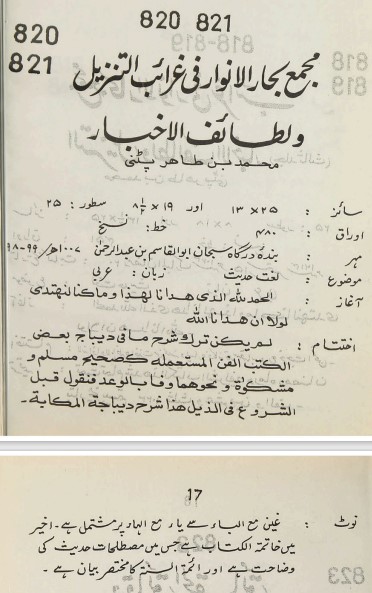 820 821
820
821
مجمع بحار الانوار فی غرائب التنزیل
ولطائف الاخبار
محمد بن طاهر پٹنی
سائز : ۲۵×۱۳ اور ۱۹×۸½ سطور : ۲۵
اوراق : ۴۸۰ خط : نسخ
مہر : بندۂ درگاہ سبحان ابوالقاسم بن عبدالرحمٰن ۱۰۰۷ھ/۹۹-۱۵۹۸
موضوع : لغت حدیث زبان : عربی
آغاز : الحمد لله الذی هدانا لهذا وما كنا لنهتدی
لولا ان هدانا الله
اختتام : لم یکن ترك شرح ما فی دیباج بعض
الكتب الفن المستعملة كصحیح مسلم و
مشكوة و نحوهما وفا بالوعد فنقول قبل
الشروع فی الذیل هذا شرح دیباجة المكایة۔
17
نوٹ : غین مع الباء سے یاء مع الهاء پر مشتمل ہے۔ اخیر
میں خاتمۃ الکتاب ہے جس میں مصطلحات حدیث کی
وضاحت ہے اور ائمۃ السنۃ کا مختصر بیان ہے ۔